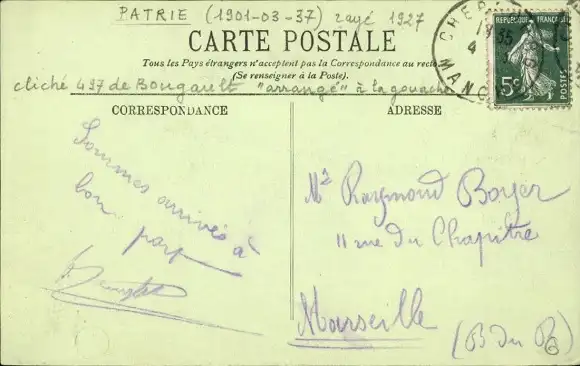 PATRIE (1901-03-37) rayé 1927
CARTE POSTALE
Tous les Pays étrangers n'acceptent pas la Correspondance au recto
(Se renseigner à la Poste).
cliché 497 de Bougault "arrangé" à la gouache
CHER
MANC
RÉPUBLIQUE FRANÇAISE
5c
POSTES
CORRESPONDANCE
ADRESSE
Sommes arrivés à
bon port
Mr Raymond Boyer
11 rue du Chapitre
Marseille
(B du R)